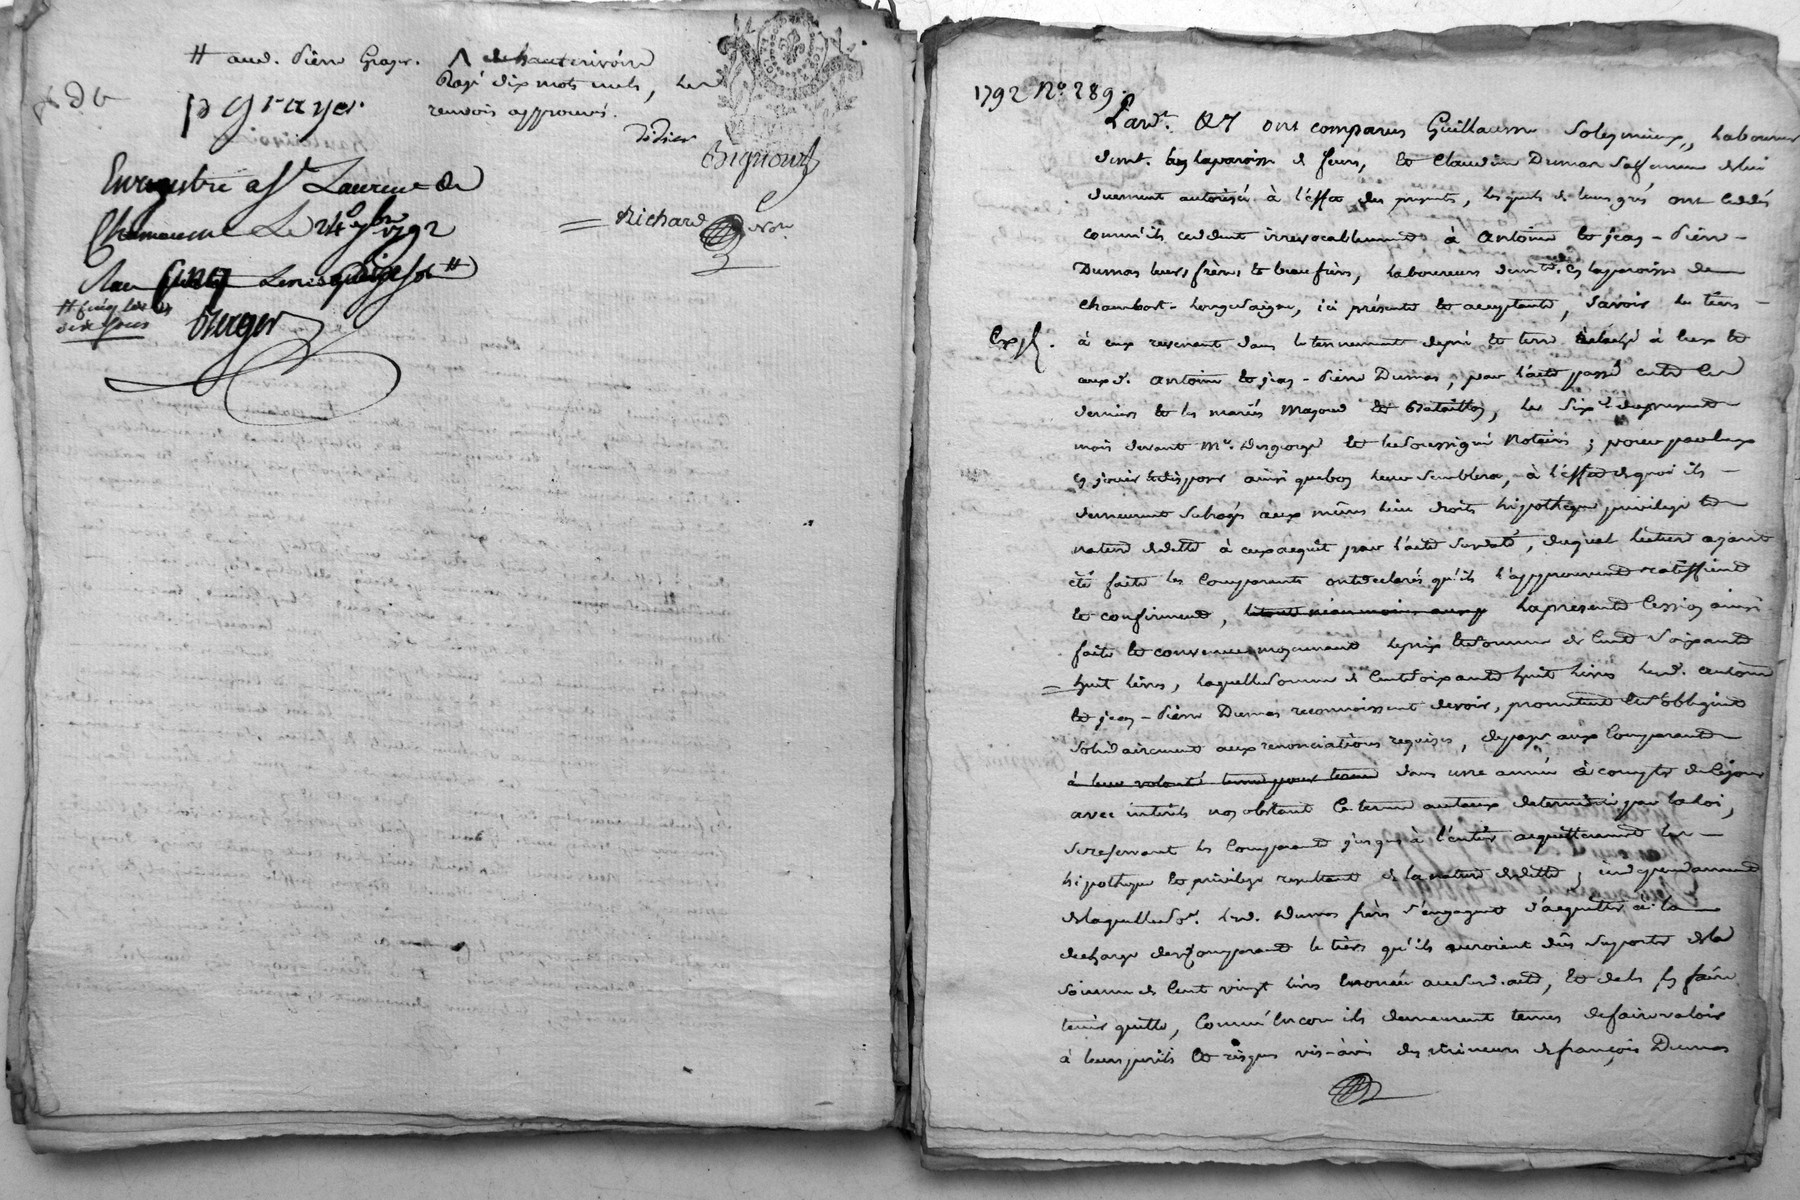 # aud. Pierre Grayer. Λ de hauterivoire
Rayé dix mots nuls, les
renvois approuvés.
p grayer
didier
Bignour
Enregistré a St. Laurent de
Chamousset Le 24 9bre 1792
Richard Nore
# cinq livres
dix sous
Berger
1792 No. 289.
Pard. &7 ont comparus Guillaume Soleymieux, laboureur
demt. en la paroisse de feurs, et Claudine Dumas sa femme de lui
duement autorisée à l'éffet des presents, lesquels de leurs grés ont cedés
comm'ils cedent irrevocablement à Antoine et jean-Pierre
Dumas leurs frères et beaufrères, laboureurs demts. en la paroisse de
Chambost-Longesaigne, ici présents et acceptants, savoir le tiers
Exp.
à eux revenant dans le tennement de pré et terre relaché à eux et
auxd. Antoine et jean-Pierre Dumas, par l'acte passé entre ces
derniers et les mariés Mazard et Bataillon, le six du present
mois devant Me. Desgorge et le soussigné Notaires; pour par eux
en jouir et disposer ainsi que bon leur semblera, à l'éffet de quoi ils
demeurent subrogés aux mêmes lieu droits hipotheque privilege et
nature de dette à eux acquit par l'acte susdaté, duquel lecture ayant
été faite les Comparants ont declarés qu'ils l'approuvent ratiffient
et confirment, et tout néanmoins aux la presente Cession ainsi
faite et convenue moyennant le prix et somme de Cent soixante
huit livres, laquelle somme de Cent soixante huit livres lesd. antoine
et jean-Pierre Dumas reconnoissent devoir, promettent et s'obligent
solidairement aux renonciations requises, de payer aux Comparants
à leur volonté terme pour terme dans une année à compter de ce jour
avec intérêts nonobstant Ce terme au taux determiné par la loi,
se reservant les Comparants jusqu'à l'entier acquittement leur
hipotheque et privilege resultant de la nature de dette; independamment
de laquelle so. lesd. Dumas frères s'engagent d'acquitter à la
decharge des Comparants le tiers qu'ils auroient dûs suporter de la
somme de Cent vingt livres enoncée au susd. acte, et de les en faire
tenir quitte, Comm'encore ils demeurent tenus de faire valoir
à leurs perils et risques vis-à-vis des mineurs de françois Dumas